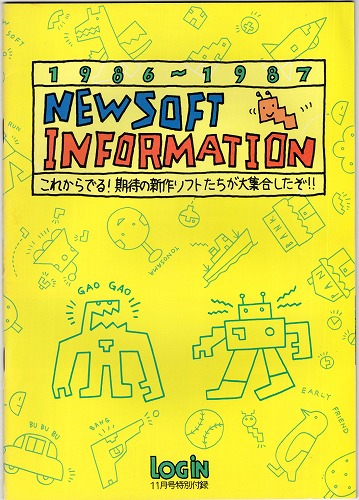 1986~1987
NEWSOFT
INFORMATION
これからでる!期待の新作ソフトたちが大集合したぞ!!
RUN
TONOSAMA
PAN
PAN
GAO GAO
BU BU BU
BANG
EARLY FRIEND
LOGIN
11月号特別付録